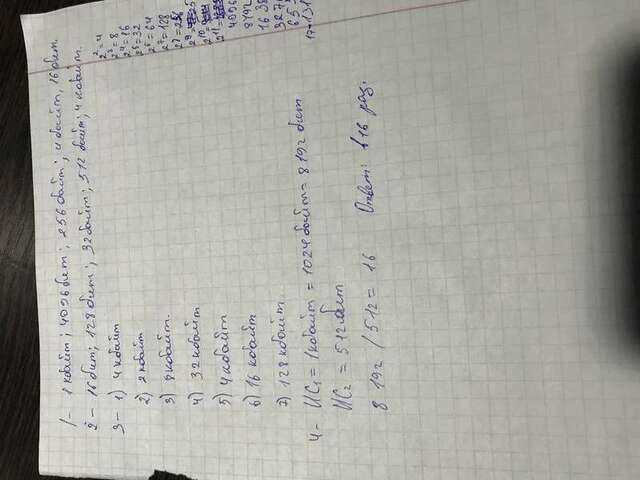 1- 1 кбайт; 4096 бит; 256 байт; 4 байт, 16 бит.
2- 16 бит; 128 бит; 32 байт; 512 байт; 4 кбайт.
3- 1) 4 кбайт
2) 2 кбайт
3) 8 кбайт.
4) 32 кбайт
5) 4 кбайт
6) 16 кбайт
7) 128 кбайт.
4- ИС1 = 1 кбайт = 1024 байт = 8192 бит
ИС2 = 512 бит
8192 / 512 = 16 Ответ: в 16 раз.
2² = 4
2³ = 8
2⁴ = 16
2⁵ = 32
2⁶ = 64
2⁷ = 128
2⁸ = 256
2⁹ =
2¹⁰ =
2¹¹ =
4096
8192
1638
327
655
17=131